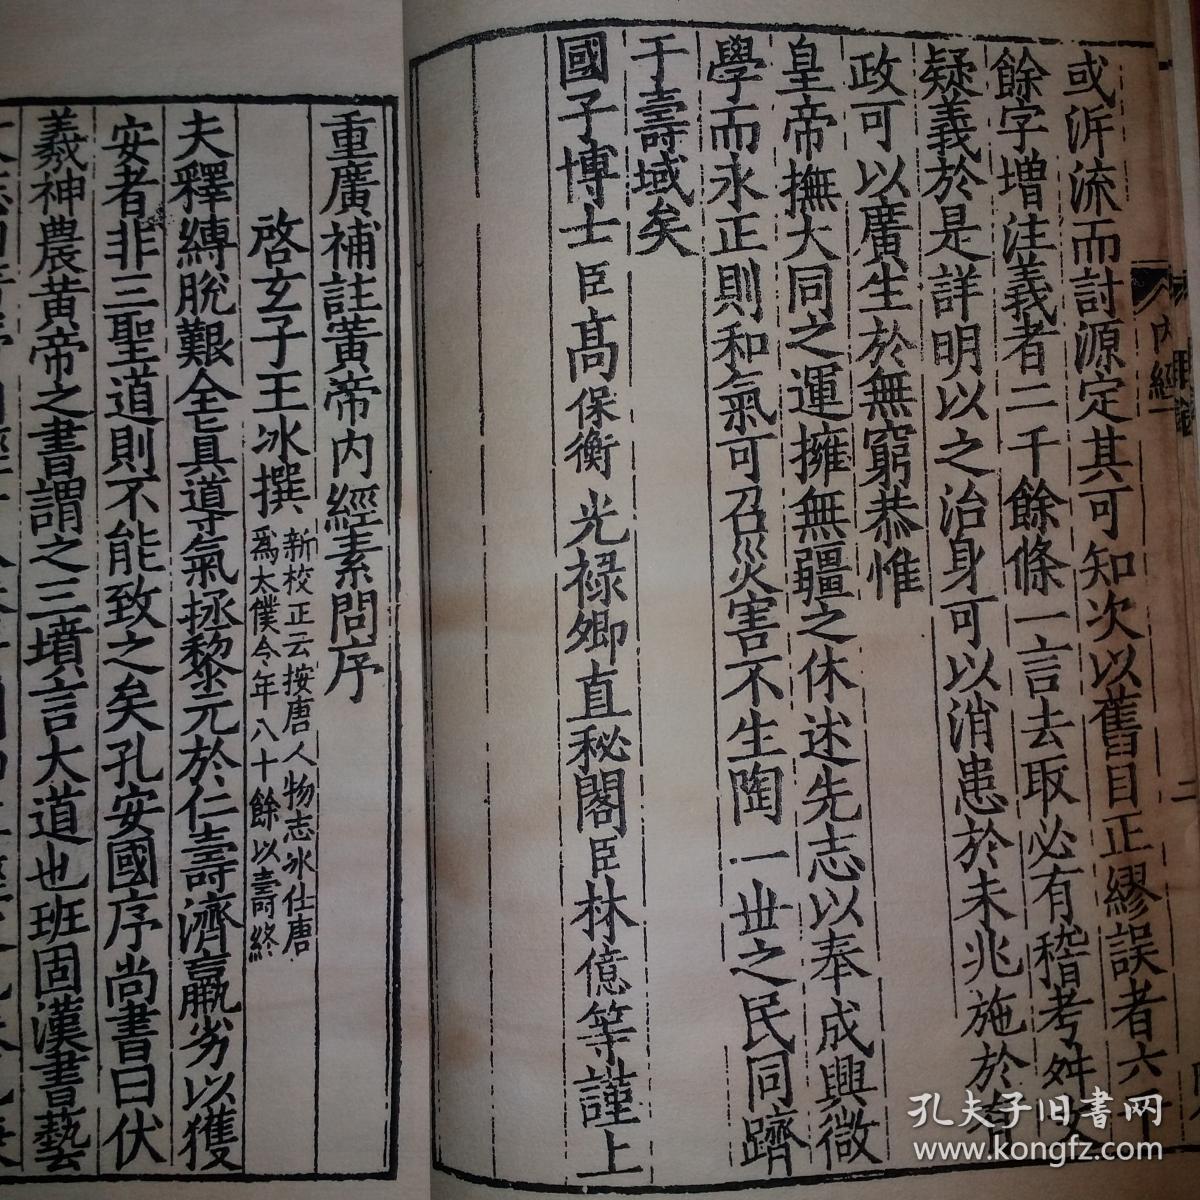 或泝流而討源定其可知次以舊目正繆誤者六千
餘字增注義者二千餘條一言去取必有稽考舛文
疑義於是詳明以之治身可以消患於未兆施於有
政可以廣生於無窮恭惟
皇帝撫大同之運擁無疆之休述先志以奉成興微
學而永正則和氣可召災害不生陶一世之民同躋
于壽域矣
國子博士臣高保衡光祿卿直秘閣臣林億等謹上
內經
二
重廣補註黃帝內經素問序
啓玄子王冰撰新校正云按唐人物志冰仕唐
爲太僕令年八十餘以壽終
夫釋縛脫艱全真導氣拯黎元於仁壽濟羸劣以獲
安者非三聖道則不能致之矣孔安國序尚書曰伏
羲神農黃帝之書謂之三墳言大道也班固漢書藝
孔夫子旧书网
www.kongfz.com